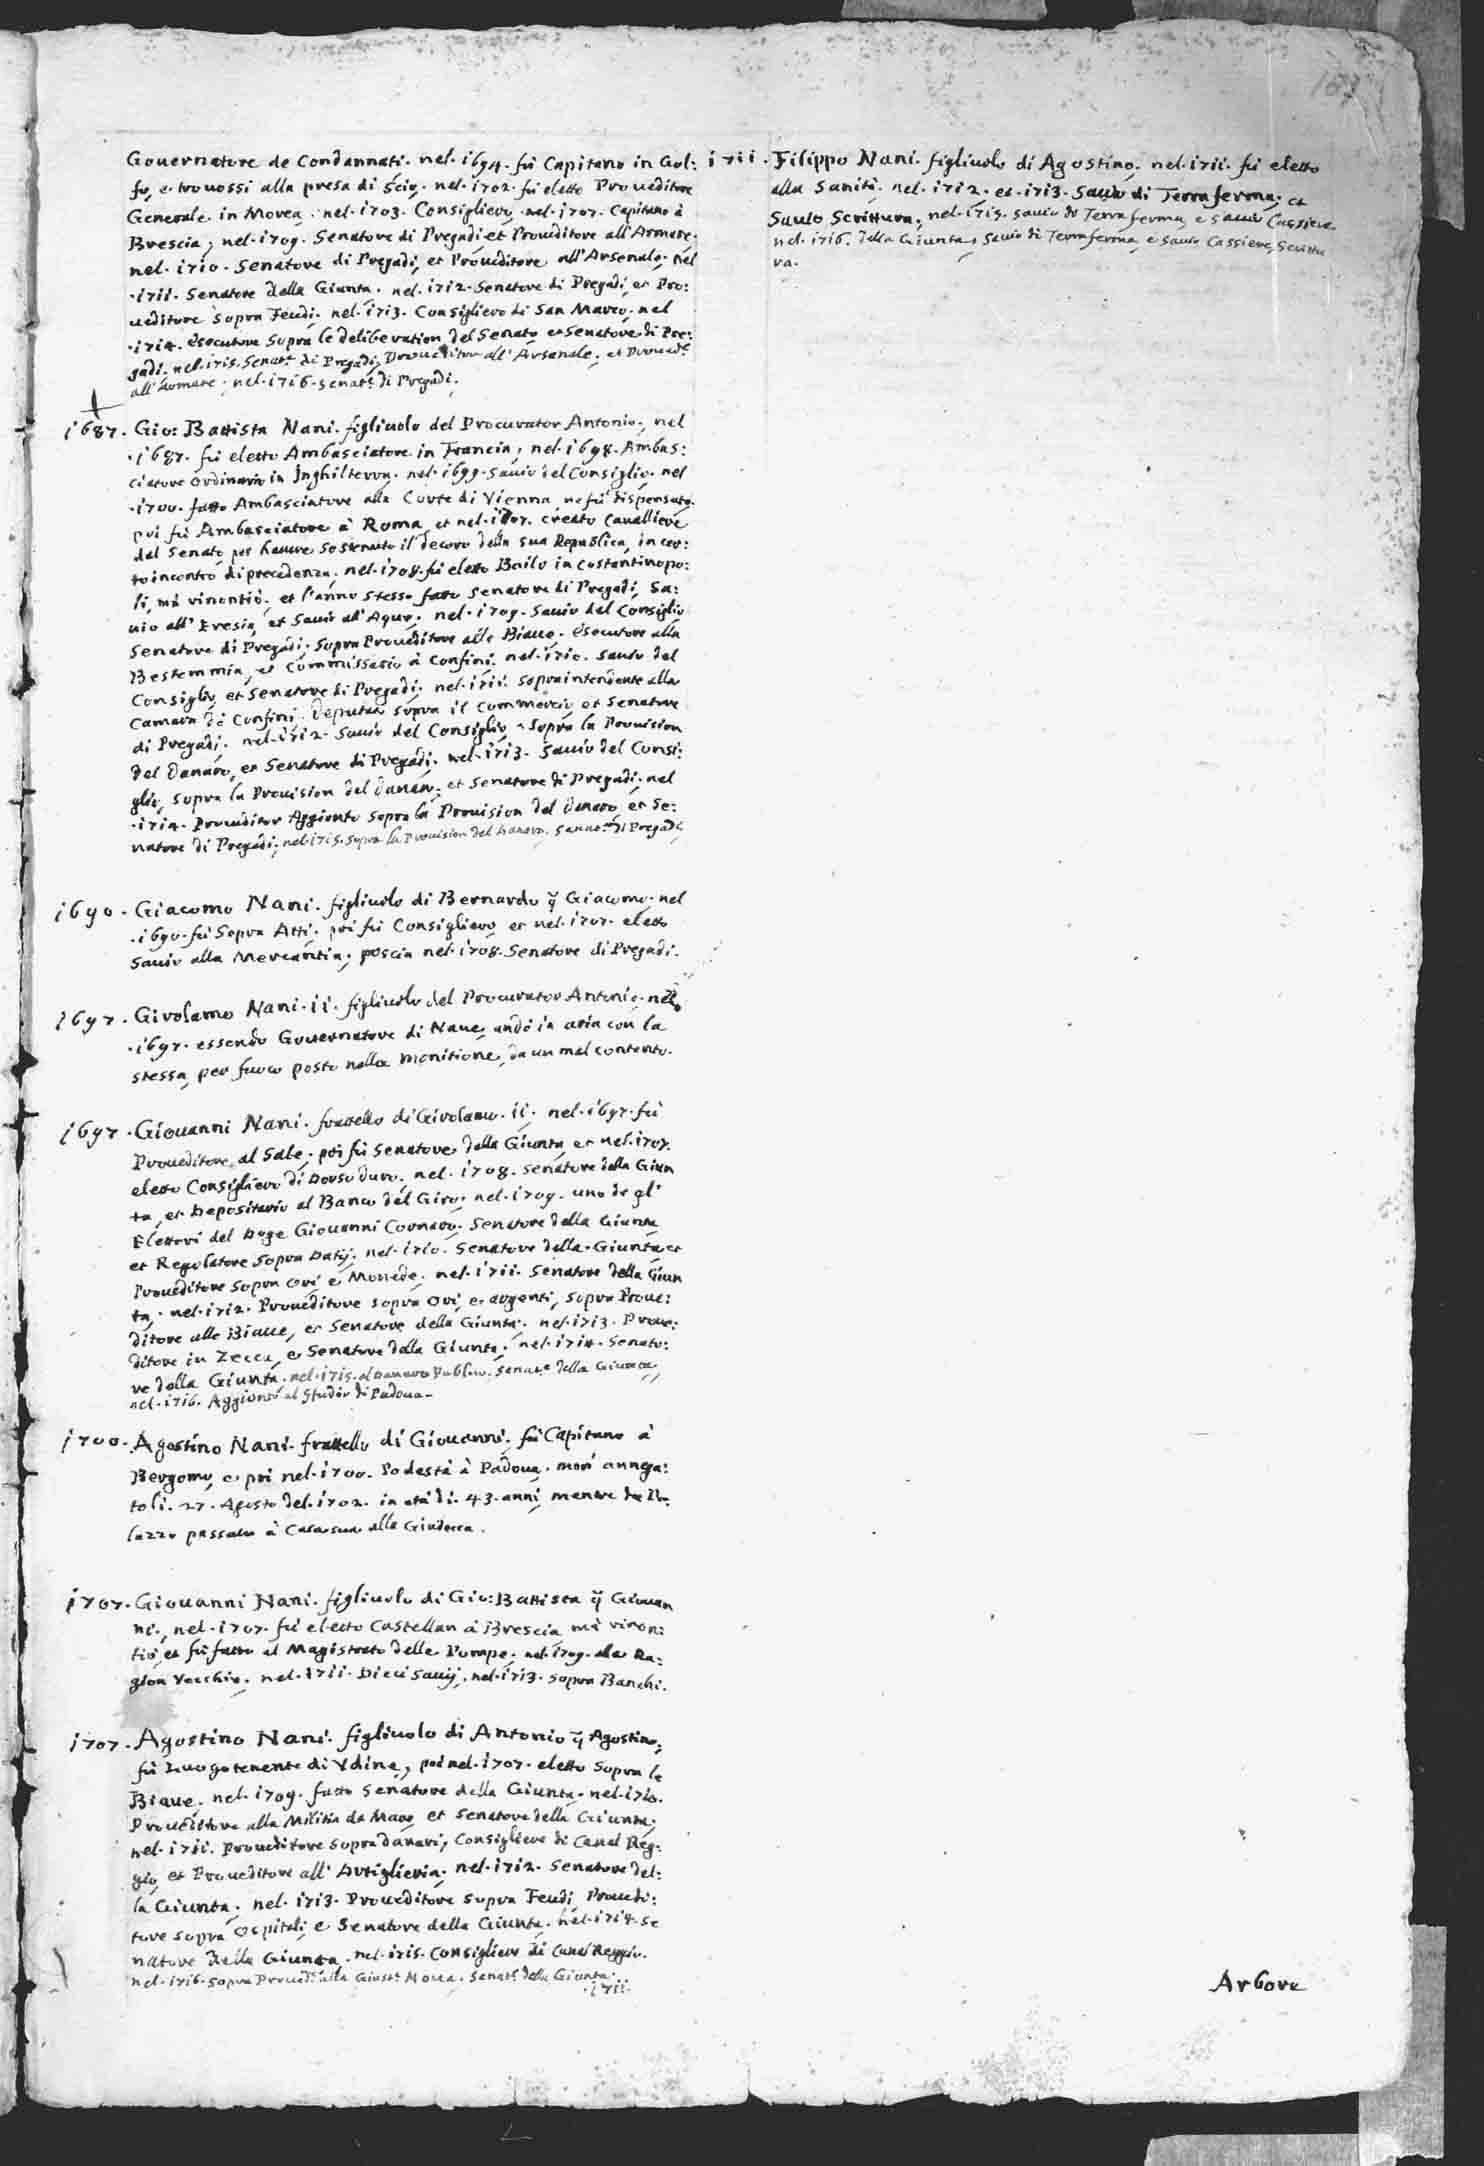 Gouernatore de Condannati. nel. 1694. fù Capitano in Gol:
fo, e trouossi alla presa di Scio. nel. 1702. fù eletto Proueditore
Generale in Morea. nel. 1703. Consigliero, nel. 1707. Capitano à
Brescia, nel. 1709. Senatore di Pregadi et Proueditore all'Armare.
nel. 1710. Senatore di Pregadi, et Proueditore all'Arsenale. nel
.1711. Senatore della Giunta. nel. 1712. Senatore di Pregadi, et Pro:
ueditore sopra Feudi. nel. 1713. Consigliero di San Marco. nel
.1714. Esecutore sopra le deliberation del Senato e Senatore di Pre:
gadi. nel. 1715. Senat.e di Pregadi, Proueditor all'Arsenale, et Proued.e
all'Armare. nel. 1716. Senat.e di Pregadi.
1687. Gio: Battista Nani. figliuolo del Procurator Antonio, nel
.1687. fù eletto Ambasciatore in Francia, nel. 1698. Ambas:
ciatore Ordinario in Inghilterra. nel. 1699. Sauio del Consiglio. nel
.1700. fatto Ambasciatore alla Corte di Vienna ne fù dispensato.
poi fù Ambasciatore à Roma, et nel. 1707. creato Caualliere
dal Senato per hauere sostenuto il decoro della sua Republica, in cer:
to incontro di precedenza. nel. 1708. fù eletto Bailo in Costantinopo:
li, mà rinontiò. et l'anno stesso fatto Senatore di Pregadi, Sa:
uio all'Eresia, et Sauio all'Aque. nel. 1709. Sauio del Consiglio
Senatore di Pregadi. Sopra Proueditore alle Biaue. Esecutore alla
Bestemmia, et Commissario à Confini. nel. 1710. Sauio del
Consiglio et Senatore di Pregadi. nel. 1711. Sopraintendente alla
Camara dè Confini. Deputato sopra il Commercio et Senatore
di Pregadi. nel. 1712. Sauio del Consiglio, Sopra la Prouision
del Danaro, et Senatore di Pregadi. nel. 1713. Sauio del Consi:
glio, sopra la Prouision del Danaro, et Senatore di Pregadi. nel
.1714. Proueditor Aggionto sopra la Prouision del Danaro et Se:
natore di Pregadi. nel. 1715. sopra la Prouision del Danaro. di Pregadi
1690. Giacomo Nani. figliuolo di Bernardo q̃ Giacomo. nel
.1690. fù Sopra Atti. poi fù Consigliero, et nel. 1707. eletto
Sauio alla Mercantia, poscia nel. 1708. Senatore di Pregadi.
1697. Girolamo Nani. ii. figliuolo del Procurator Antonio. nel
.1697. essendo Gouernatore di Naue, andò in aria con la
stessa, per fuoco posto nella monitione, da un mal contento.
1697. Giouanni Nani. frattello di Girolamo. ii. nel. 1697. fù
Proueditore al Sale. poi fù Senatore della Giunta et nel. 1707.
eletto Consigliero di Dorso duro. nel. 1708. Senatore della Giun
ta, et Depositario al Banco del Giro. nel. 1709. uno de gl'
Elettori del Doge Giouanni Cornaro. Senatore della Giunta
et Regolatore sopra Datij. nel. 1710. Senatore della Giunta et
Proueditore sopra Ori e Monede. nel. 1711. Senatore della Giun
ta. nel. 1712. Proueditore sopra Ori, e argenti, sopra Proue:
ditore alle Biaue, et Senatore della Giunta. nel. 1713. Proue:
ditore in Zecca, e Senatore della Giunta. nel. 1714. Senato:
re della Giunta. nel. 1715. al Danaro Publico. Senat.e della Giunta,
nel. 1716. Aggionto al Studio di Padoua.
1700. Agostino Nani. frattello di Giouanni. fù Capitano à
Bergomo, e poi nel. 1700. Podestà à Padoua. morì annega:
to li. 27. Agosto del. 1702. in età di. 43. anni mentre da Pa:
lazzo passaua à Casa sua alla Giudecca.
1707. Giouanni Nani. figliuolo di Gio: Battista q̃ Giouan
ni, nel. 1707. fù eletto Castellan à Brescia mà rinon:
tiò et fù fatto al Magistrato delle Pompe. nel. 1709. alla Ra:
gion Vecchie. nel. 1711. Dieci Sauij. nel. 1713. sopra Banchi.
1707. Agostino Nani. figliuolo di Antonio q̃ Agostino,
fù Luogotenente di Vdine, poi nel. 1707. eletto Sopra le
Biaue. nel. 1709. fatto Senatore della Giunta. nel. 1710.
Proueditore alla Militia da Mare et Senatore della Giunta.
nel. 1711. Proueditore sopra Danari, Consigliero di Canal Reg:
gio, et Proueditore all'Artiglieria. nel. 1712. Senatore del:
la Giunta. nel. 1713. Proueditore sopra Feudi, Proueди:
tore sopra Ospitali e Senatore della Giunta. nel. 1714. Se
natore della Giunta. nel. 1715. Consigliero di Canal Reggio.
nel. 1716. sopra Proued.e alla Giust.a Noua. Senat.e della Giunta.
.1711.
1711. Filippo Nani. figliuolo di Agostino. nel. 1711. fù eletto
alla Sanità. nel. 1712. et. 1713. Sauio di Terra ferma. et
Sauio Scrittura. nel. 1715. Sauio di Terra ferma, e Sauio Cassiere
nel. 1716. della Giunta, Sauio di Terraferma, e Sauio Cassiere, Scrittu
ra.
Arbore